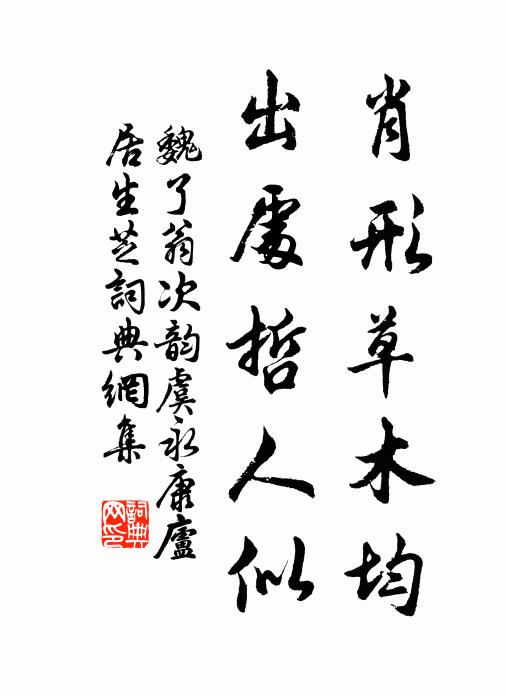 肖形草木均
出處哲人似
魏了翁次韵虞永康廬
居生芝詞典網集
詞典网印